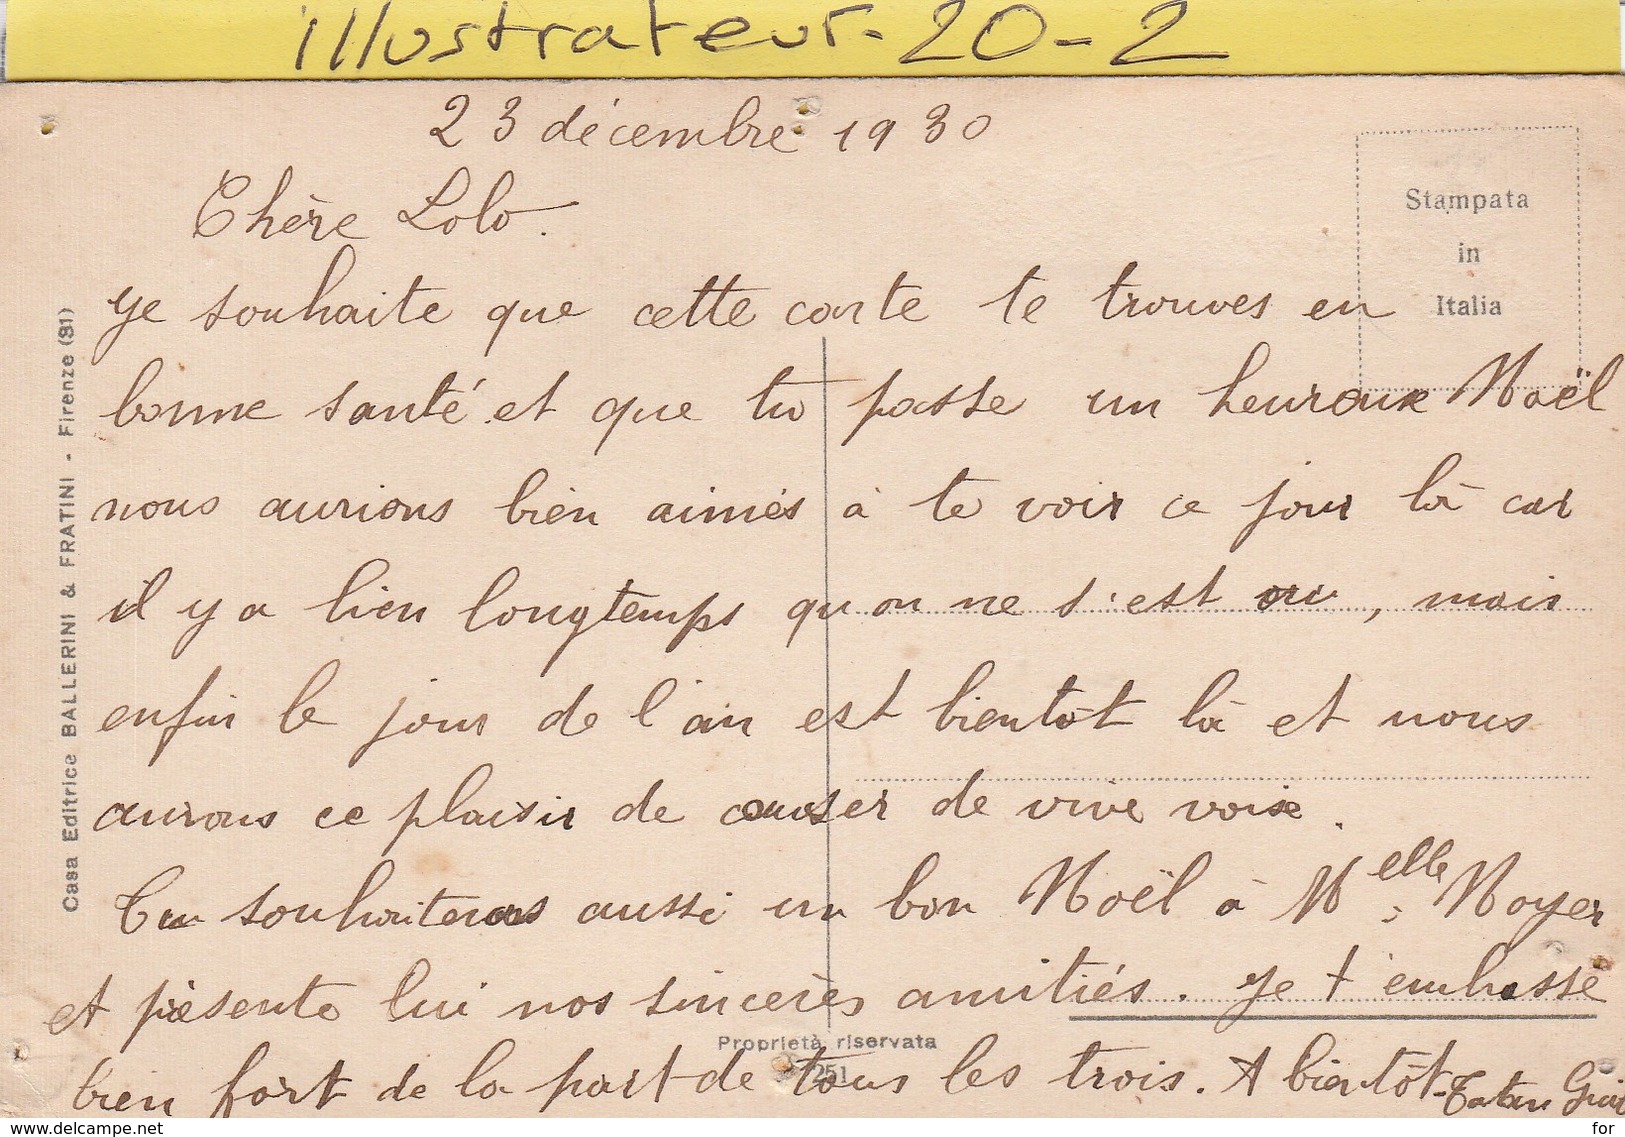 illustrateur - 20 - 2
23 décembre 1930
Chère Lolo.
Stampata
in
Italia
Je souhaite que cette carte te trouves en
bonne santé et que tu passe un heureux Noël
nous aurions bien aimés à te voir ce jour là car
il y a bien longtemps qu'on ne s'est vu, mais
enfin le jour de l'an est bientôt là et nous
aurons ce plaisir de causer de vive voix.
Tu souhaiteras aussi un bon Noël à Melle Noyer
et présente lui nos sincères amitiés. Je t'embasse
bien fort de la part de tous les trois. A bientôt.
Casa Editrice BALLERINI & FRATINI - Firenze (31)
Proprietà riservata
251
delcampe.net
for